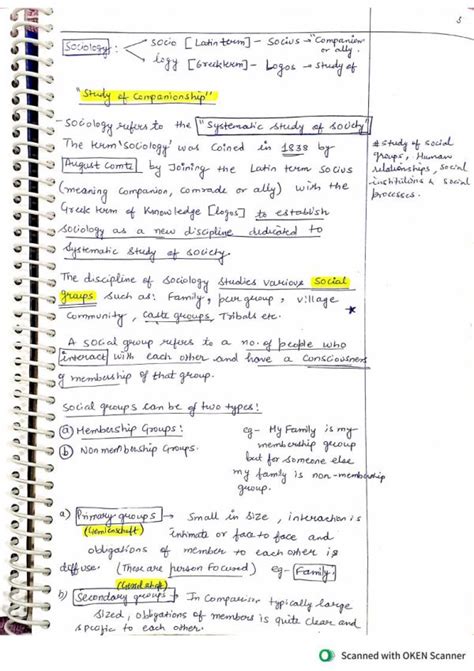 5
Sociology: socio [Latin term] - Socius → "Companion or ally.
logy [Greek term] - Logos → study of
"Study of Companionship"
- Sociology refers to the "Systematic study of society"
The term 'sociology' was coined in 1838 by
August Comte by Joining the Latin term socius
(meaning companion, comrade or ally) with the
Greek term of Knowledge [logos] to establish
sociology as a new discipline dedicated to
systematic study of society.
# study of social
groups, Human
relationships, social
institutions & social
processes.
The discipline of sociology studies various social
groups such as: Family, peer group, village
community, caste groups, Tribals etc.
A social group refers to a no. of people who
interact with each other and have a consciousness
of membership of that group.
Social groups can be of two types:
(a) Membership Groups:
(b) Non membership Groups.
eg- My Family is my
membership group
but for someone else
my family is non-membership
group.
a) Primary groups → Small in size, interaction is
(Gemienschaft) intimate or face to face and
obligations of member to each other is
diffuse. (These are person focused) eg- Family.
b) Secondary groups → In Comparison typically large
sized, obligations of members is quite clear and
specific to each other.
Scanned with OKEN Scanner